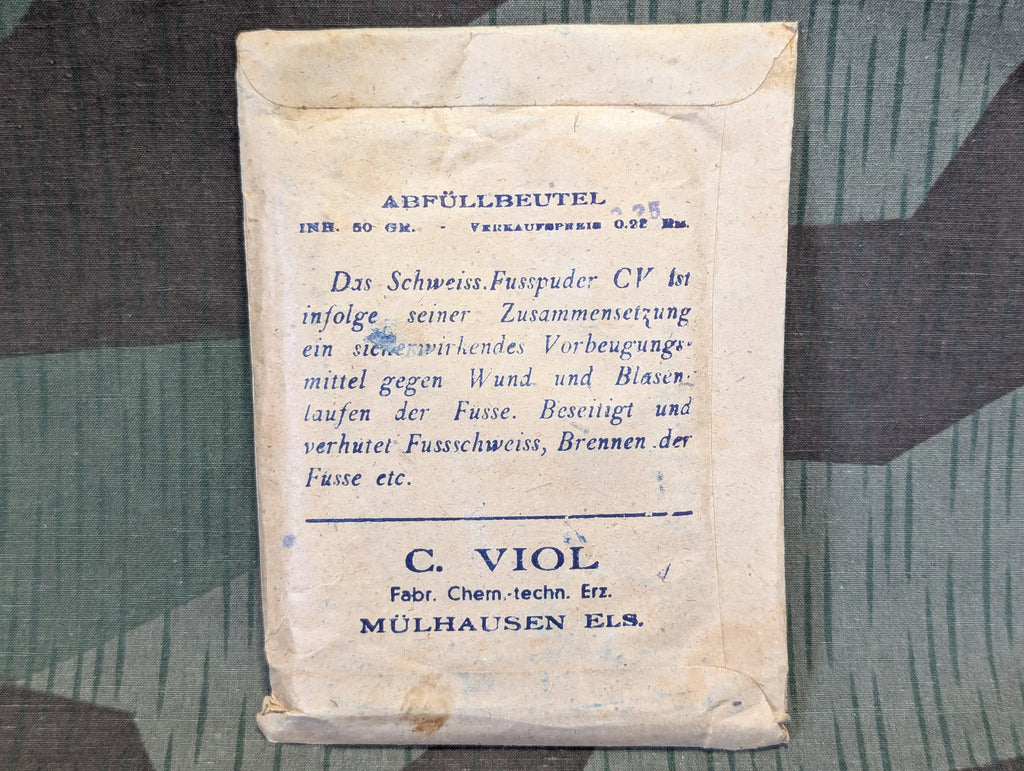 ABFÜLLBEUTEL
INH. 50 GR. - VERKAUFSPREIS 0.22 RM.
0.25
Das Schweiss-Fusspuder CV ist
infolge seiner Zusammensetzung
ein sicherwirkendes Vorbeugungs-
mittel gegen Wund und Blasen-
laufen der Fusse. Beseitigt und
verhutet Fussschweiss, Brennen der
Fusse etc.
C. VIOL
Fabr. Chem.-techn. Erz.
MÜLHAUSEN ELS.